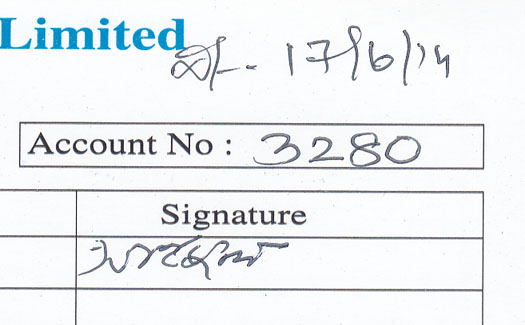 Limited
17/6/14
Account No : 3280
Signature